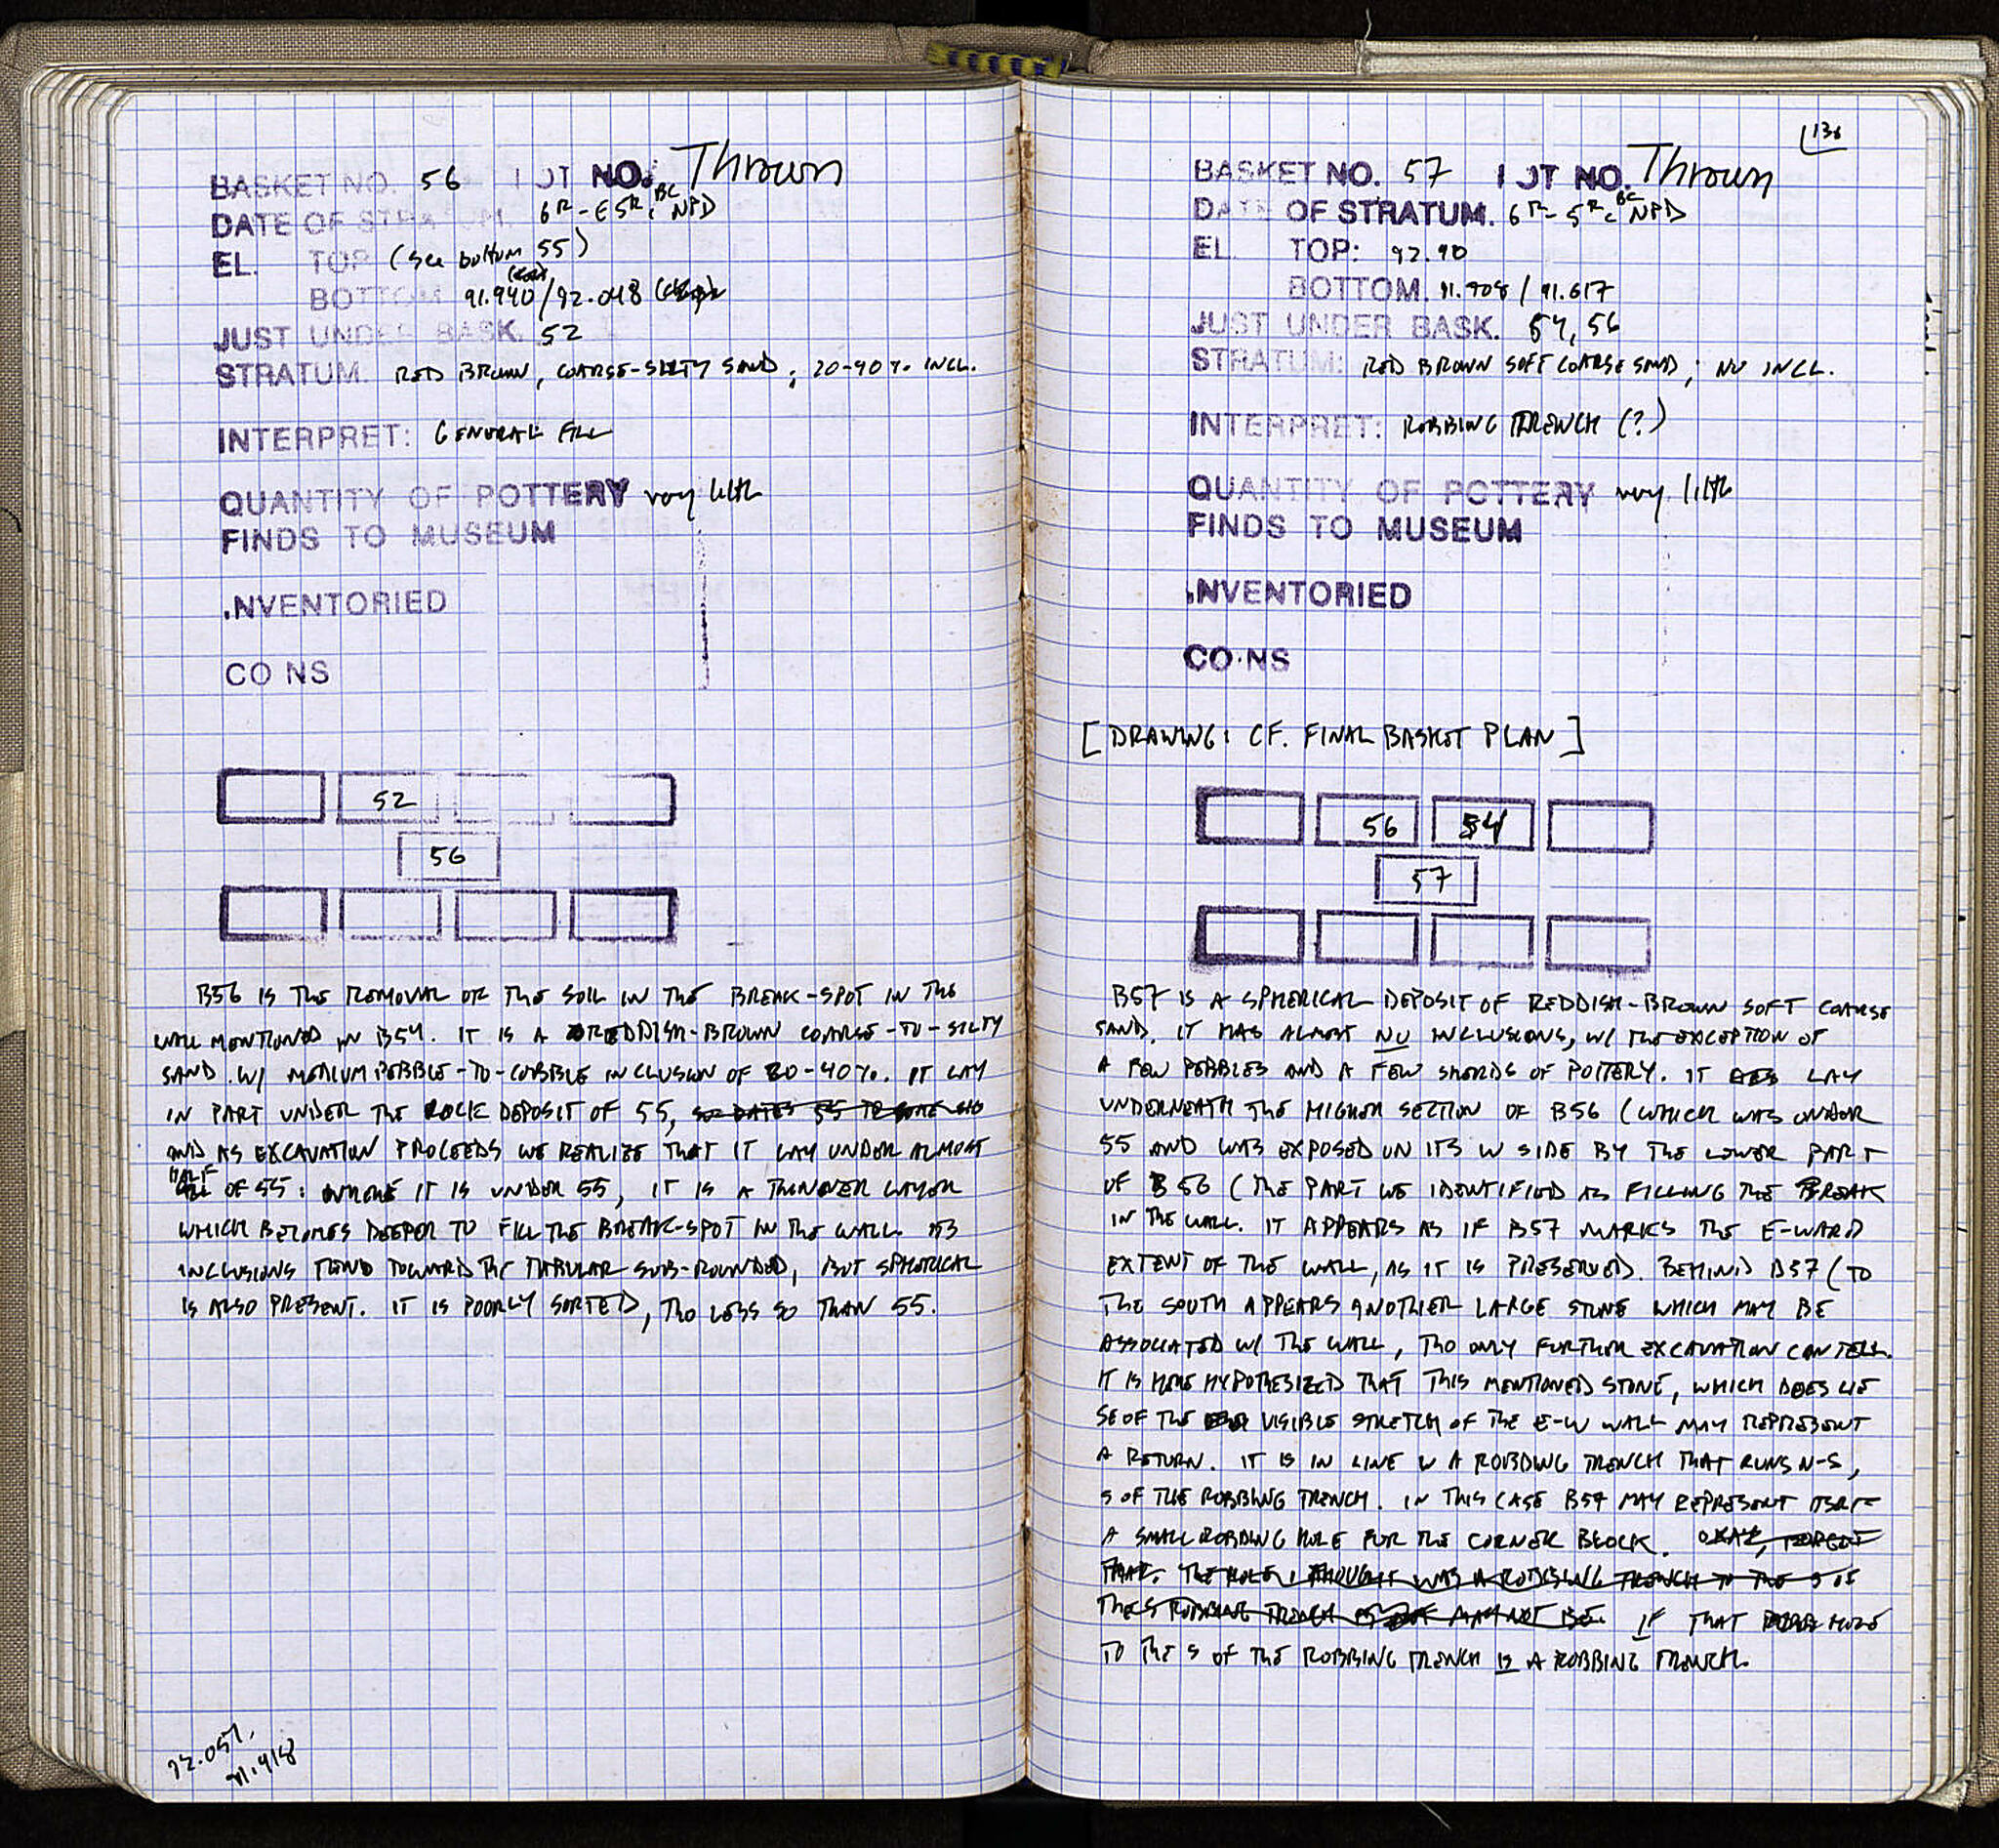 BASKET NO. 56 LOT NO. Thrown
DATE OF STRATUM. 6th - E 5th c BC NPD
EL. TOP (see bottom 55)
BOTTOM 91.940/92.048
JUST UNDER BASK. 52
STRATUM. RED BROWN, COARSE-SILTY SAND; 20-40% INCL.
INTERPRET: GENERAL FILL
QUANTITY OF POTTERY very little
FINDS TO MUSEUM
INVENTORIED
CO NS
52
56
B56 IS THE REMOVAL OF THE SOIL IN THE BREAK-SPOT IN THE
WALL MENTIONED IN B54. IT IS A REDDISH-BROWN COARSE-TO-SILTY
SAND W/ MEDIUM PEBBLE-TO-COBBLE INCLUSION OF 20-40%. IT LAY
IN PART UNDER THE ROCK DEPOSIT OF 55,
AND AS EXCAVATION PROCEEDS WE REALIZE THAT IT LAY UNDER ALMOST
HALF OF 55: WHERE IT IS UNDER 55, IT IS A THINNER LAYER
WHICH BECOMES DEEPER TO FILL THE BREAK-SPOT IN THE WALL. ITS
INCLUSIONS TEND TOWARD THE TABULAR SUB-ROUNDED, BUT SPHERICAL
IS ALSO PRESENT. IT IS POORLY SORTED, THO LESS SO THAN 55.
92.051,
91.918
136
BASKET NO. 57 LOT NO. Thrown
DATE OF STRATUM. 6th - 5th c BC NPD
EL TOP: 92.90
BOTTOM. 91.908 / 91.617
JUST UNDER BASK. 54, 56
STRATUM: RED BROWN SOFT COARSE SAND; NO INCL.
INTERPRET: ROBBING TRENCH (?)
QUANTITY OF POTTERY very little
FINDS TO MUSEUM
INVENTORIED
CO.NS
[DRAWING: CF. FINAL BASKET PLAN]
56 54
57
B57 IS A SPHERICAL DEPOSIT OF REDDISH-BROWN SOFT COARSE
SAND. IT HAS ALMOST NO INCLUSIONS, W/ THE EXCEPTION OF
A FEW PEBBLES AND A FEW SHERDS OF POTTERY. IT LAY
UNDERNEATH THE HIGHER SECTION OF B56 (WHICH WAS UNDER
55 AND WAS EXPOSED ON ITS W SIDE BY THE LOWER PART
OF B56 (THE PART WE IDENTIFIED AS FILLING THE BREAK
IN THE WALL. IT APPEARS AS IF B57 MARKS THE E-WARD
EXTENT OF THE WALL, AS IT IS PRESERVED. BEHIND B57 (TO
THE SOUTH APPEARS ANOTHER LARGE STONE WHICH MAY BE
ASSOCIATED W/ THE WALL, THO ONLY FURTHER EXCAVATION CAN TELL.
IT IS HERE HYPOTHESIZED THAT THIS MENTIONED STONE, WHICH DOES LIE
SE OF THE VISIBLE STRETCH OF THE E-W WALL MAY REPRESENT
A RETURN. IT IS IN LINE W A ROBBING TRENCH THAT RUNS N-S,
S OF THE ROBBING TRENCH. IN THIS CASE B57 MAY REPRESENT ITSELF
A SMALL ROBBING HOLE FOR THE CORNER BLOCK. OKAY, FORGET
THAT. THE HOLE I THOUGHT WAS A ROBBING TRENCH TO THE S OF
THE S ROBBING TRENCH MAY NOT BE. IF THAT HOLE
TO THE S OF THE ROBBING TRENCH IS A ROBBING TRENCH.